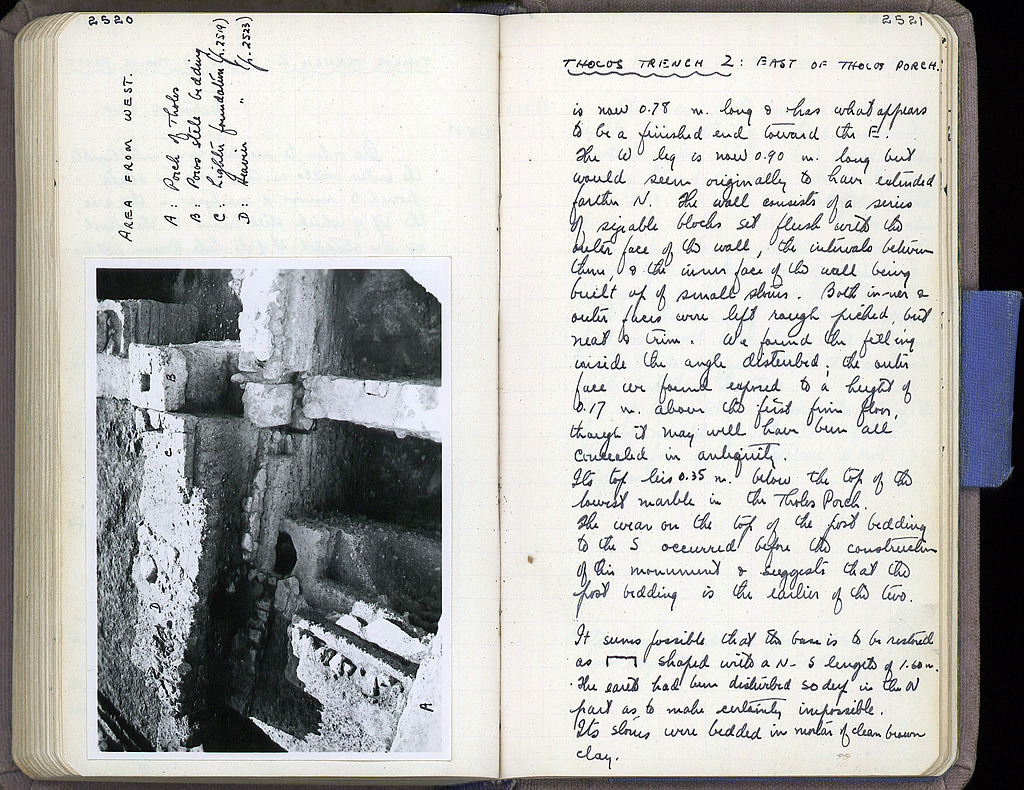 2520
AREA FROM WEST.
A: Porch of Tholos
B: Poros stele bedding
C: Lighter foundation (p. 2519)
D: Heavier " (p. 2523)
B
C
D
A
2521
THOLOS TRENCH 2: EAST OF THOLOS PORCH.
is now 0.78 m. long & has what appears
to be a finished end toward the E.
The W leg is now 0.90 m. long but
would seem originally to have extended
farther N. The wall consists of a series
of sizable blocks set flush with the
outer face of the wall, the intervals between
them, & the inner face of the wall being
built up of small stones. Both inner &
outer faces were left rough picked, but
neat & trim. We found the filling
inside the angle disturbed; the outer
face we found exposed to a height of
0.17 m. above the first firm floor,
though it may well have been all
concealed in antiquity.
Its top lies 0.35 m. below the top of the
lowest marble in the Tholos Porch.
The wear on the top of the post bedding
to the S occurred before the construction
of this monument & suggests that the
post bedding is the earlier of the two.
It seems possible that the base is to be restored
as shaped with a N-S length of 1.60 m.
The earth had been disturbed so deep in the N
part as to make certainty impossible.
Its stones were bedded in mortar of clean brown
clay.